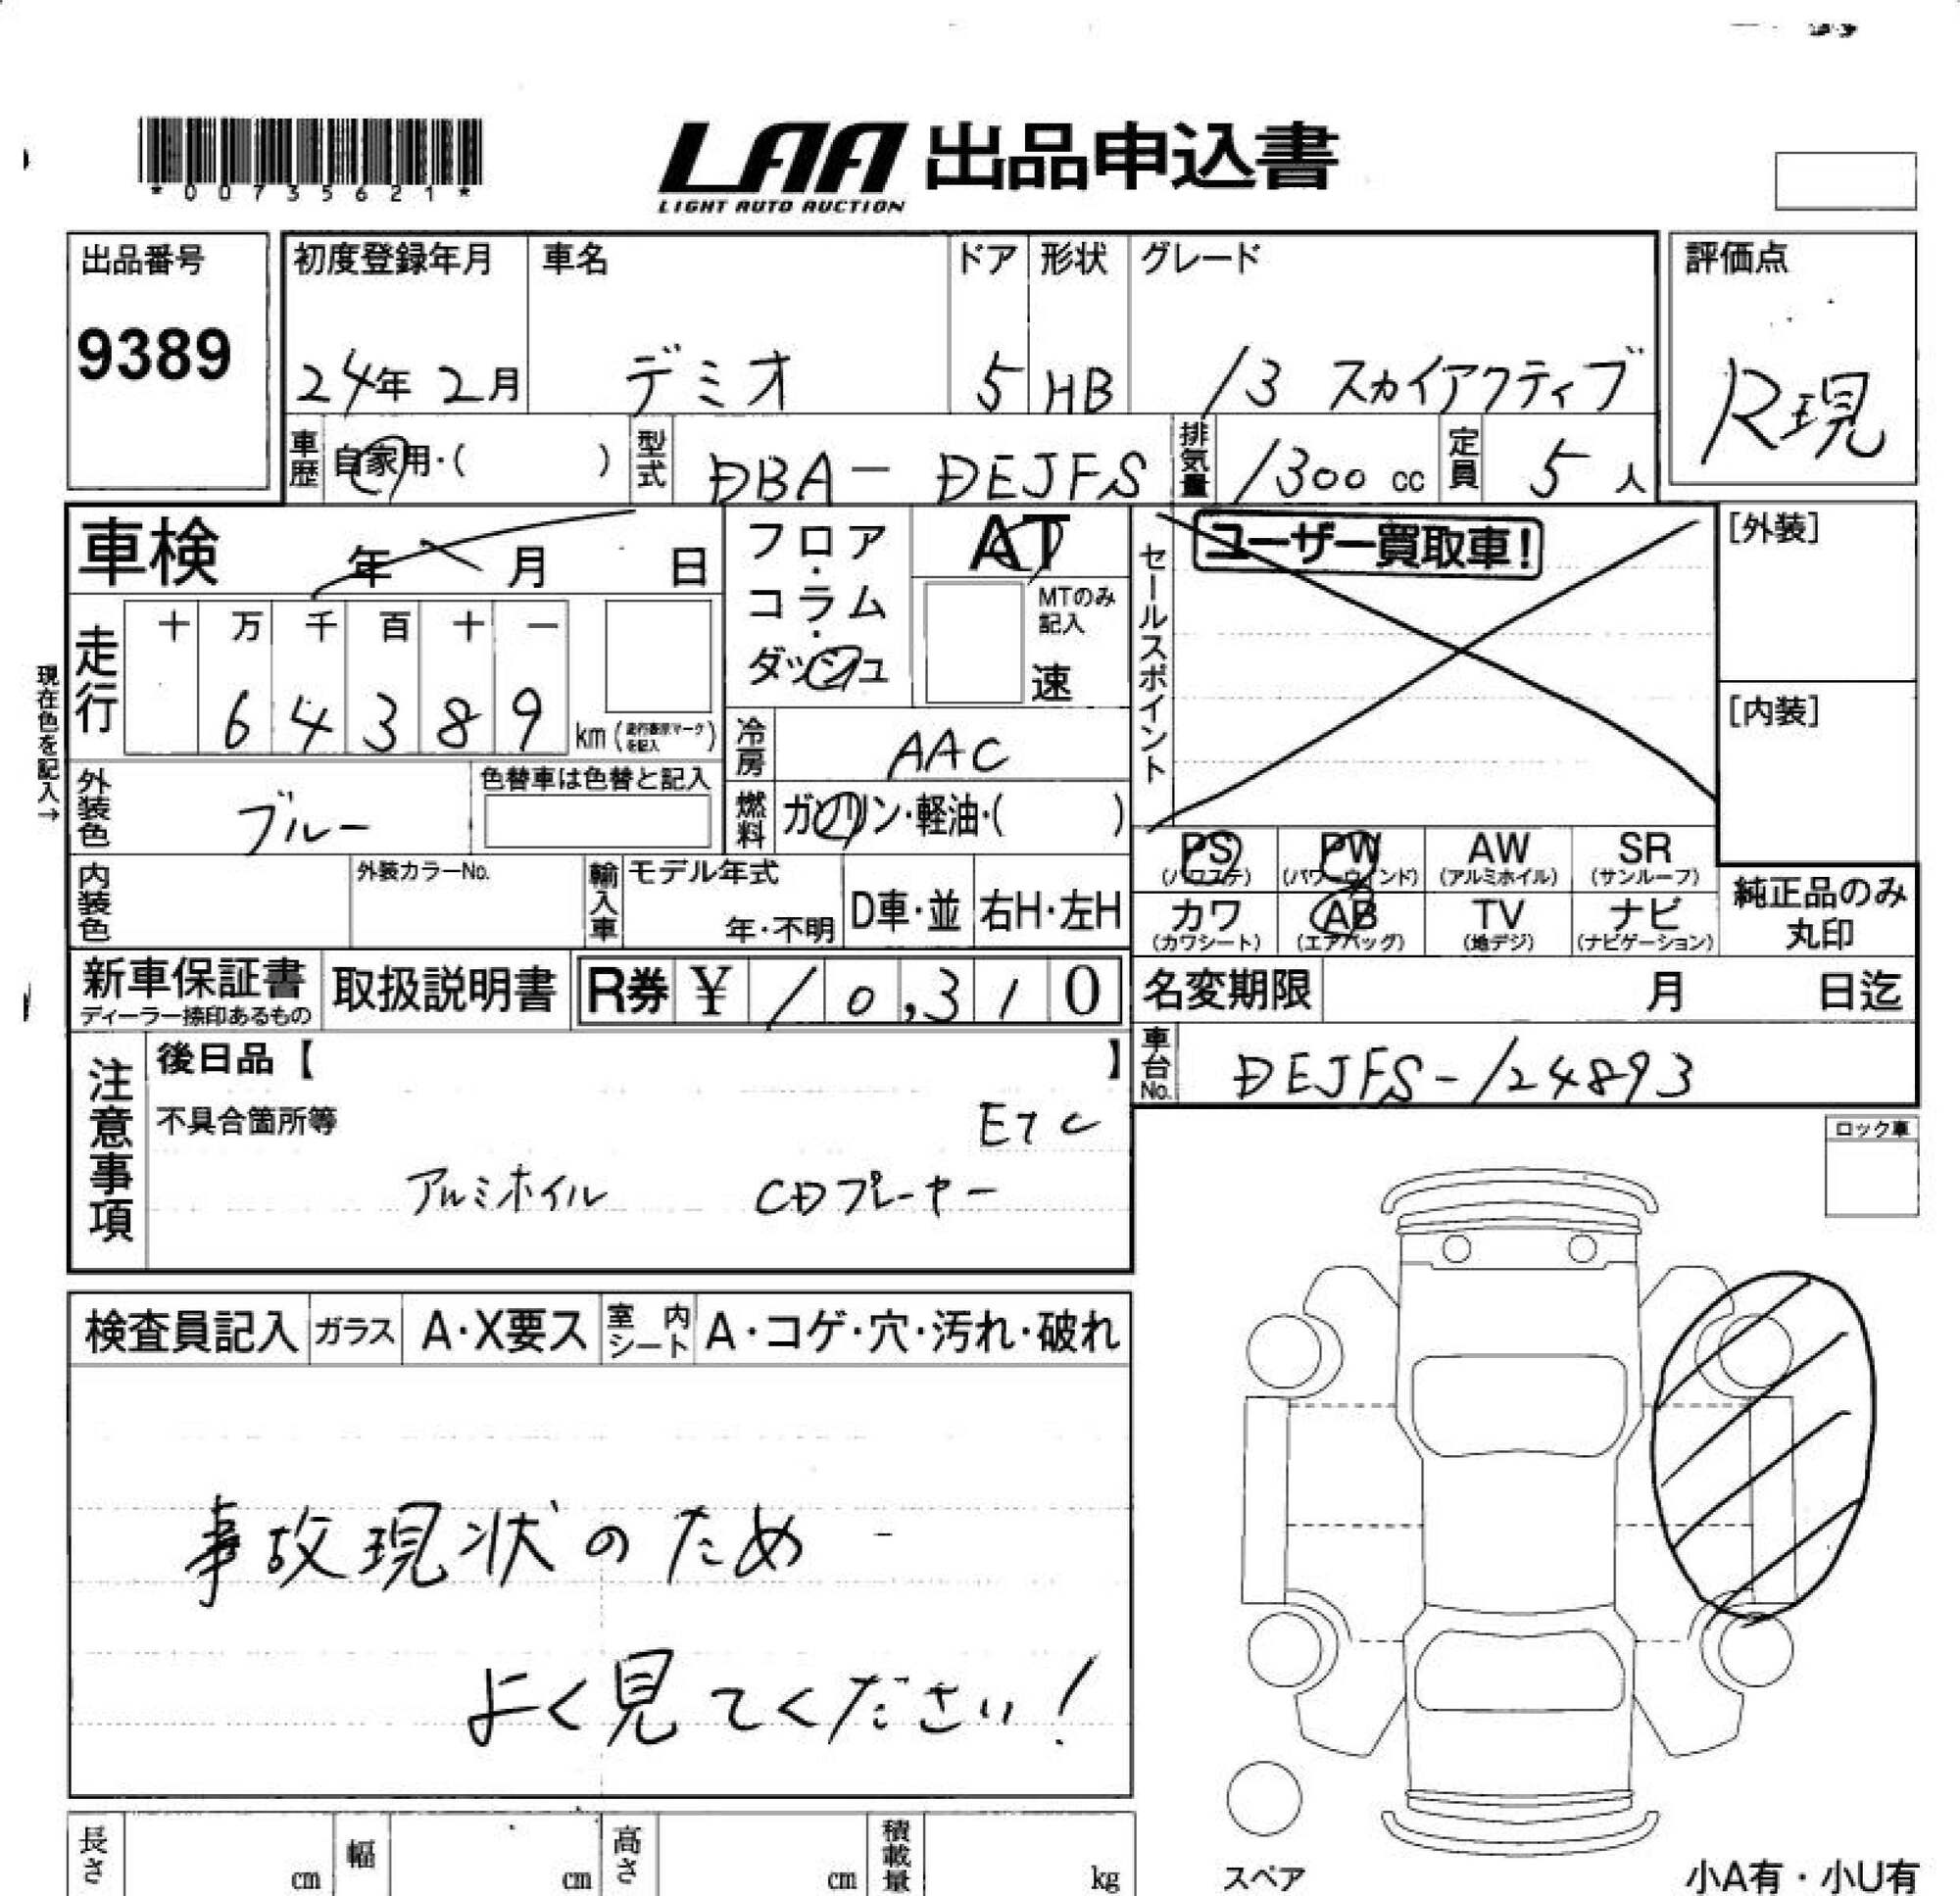 *00735621*
LAA 出品申込書
LIGHT AUTO AUCTION
出品番号 初度登録年月 車名 ドア 形状 グレード 評価点
9389 24年 2月 デミオ 5 HB 13 スカイアクティブ R現
車歴 自家用・( ) 型式 DBA- DEJFS 排気量 1300 cc 定員 5 人
車検 年 月 日 フロア・コラム・ダッシュ AT セールスポイント ユーザー買取車! [外装]
MTのみ記入 速
現在色を記入→
走行 十 万 千 百 十 一
6 4 3 8 9 km
[内装]
冷房 AAC
外装色 ブルー 色替車は色替と記入 燃料 ガソリン・軽油・( )
PS (パワステ) PW (パワーウィンド) AW (アルミホイル) SR (サンルーフ)
内装色 外装カラーNo. 輸入車 モデル年式 年・不明 D車・並 右H・左H
カワ (カワシート) AB (エアバッグ) TV (地デジ) ナビ (ナビゲーション) 純正品のみ丸印
新車保証書 ディーラー捺印あるもの 取扱説明書 R券 ¥ 10,310 名変期限 月 日迄
注意事項 後日品【 】 車台No. DEJFS-124893
不具合箇所等 ETC
アルミホイル CDプレーヤー
ロック車
検査員記入 ガラス A・X要ス 室内シート A・コゲ・穴・汚れ・破れ
事故現状のため
よく見てください!
長さ cm 幅 cm 高さ cm 積載量 kg
スペア 小A有・小U有